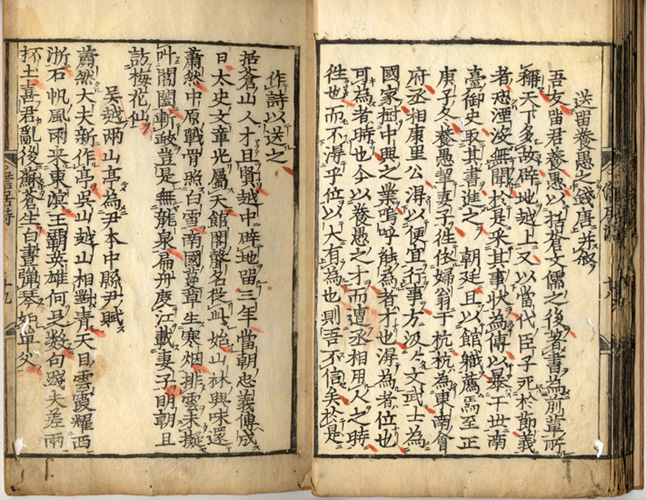 送留養愚之錢唐并敘
吾友留君養愚以括蒼文儒之後著書為前輩所
稱天下多故避地越上又以當代臣子死於節義
者恐湮没無聞於是采其事狀為傳以暴于世南
臺御史取其書進之 朝廷且以館職薦焉至正
庚子冬養愚挈妻子徃依婦翁于杭杭為東南會
府丞相康里公淂以便宜行事方汲汲文武士為
國家樹中興之業嗚呼能為者才也淂為者位也
可為者時也今以養愚之才而遭丞相用人之時
徃也而不淂乎位以大有為也則吾不信矣於是
作詩以送之
括蒼山人才且賢越中避地留三年當朝忠義傳成
日太史文章光屬天館閣聲名從此始山林興味還
蕭然中原戰骨照白雪南國草生寒烟排雲未擬
叫閶闔斬蛟豈是無龍泉扁舟度江載妻子明朝且
訪梅花仙
吳越兩山亭為尹本中縣尹賦
蕭然大夫新作亭吳山越山相對青天目雲霞耀西
浙石帆風雨来東溟王霸英雄何足數句踐夫差兩
抔土喜君亂後為蒼生白晝彈琴如單父